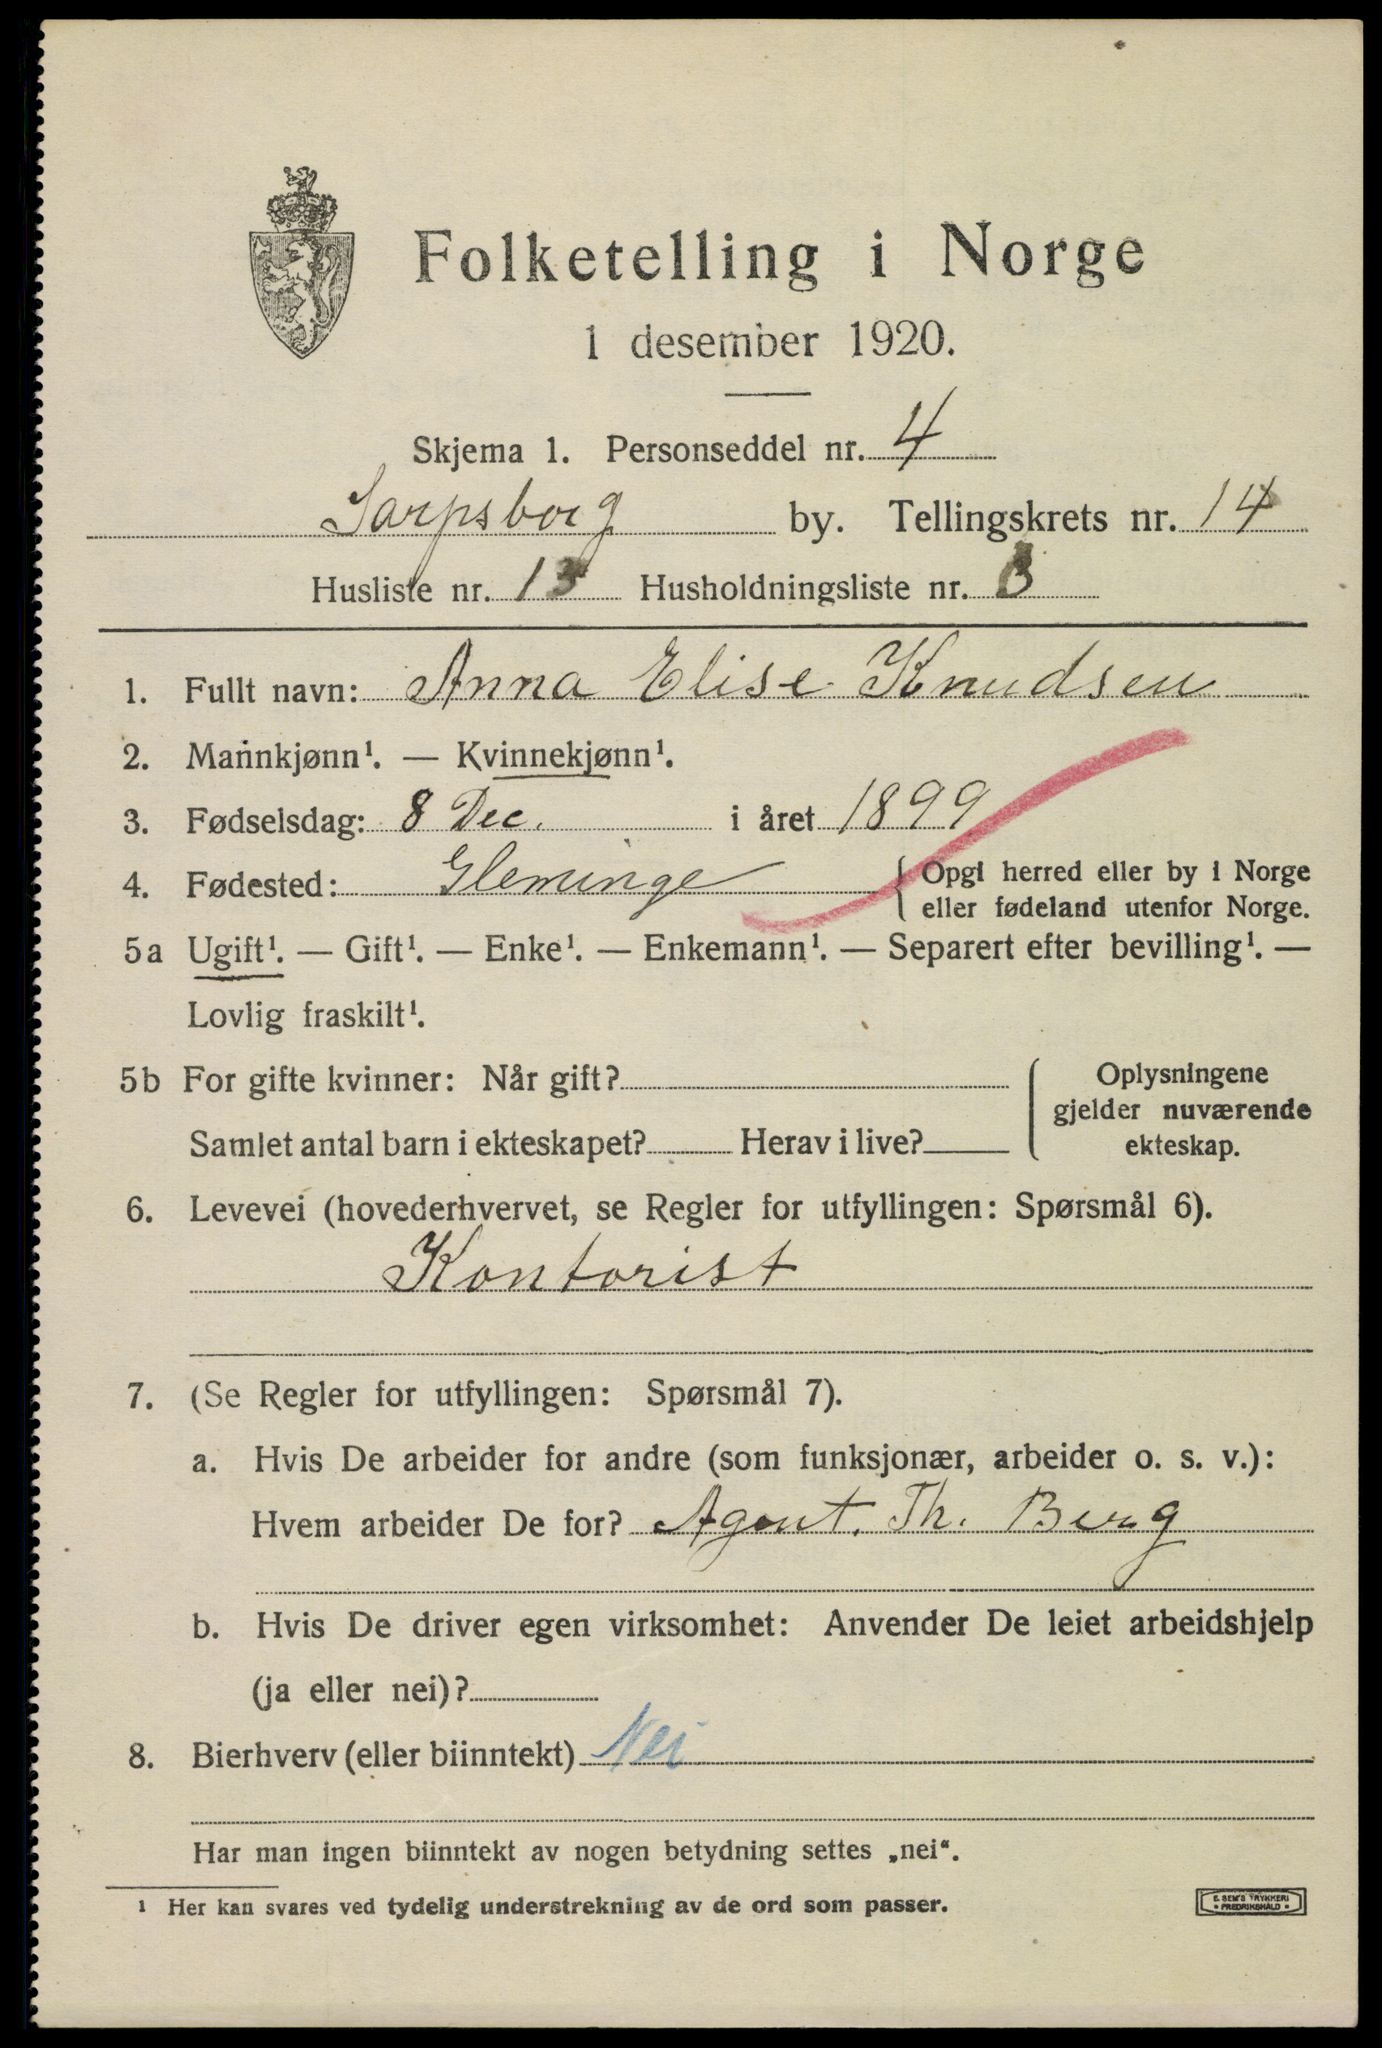 Folketelling i Norge
1 desember 1920.
Skjema 1. Personseddel nr. 4
Sarpsborg by. Tellingskrets nr. 14
Husliste nr. 13 Husholdningsliste nr. 3
1. Fullt navn: Anna Elise Knudsen
2. Mannkjønn¹. — Kvinnekjønn¹.
3. Fødselsdag: 8 Dec. i året 1899
4. Fødested: Glemminge { Opgi herred eller by i Norge
eller fødeland utenfor Norge.
5a Ugift¹. — Gift¹. — Enke¹. — Enkemann¹. — Separert efter bevilling¹. —
Lovlig fraskilt¹.
5b For gifte kvinner: Når gift? { Oplysningene
gjelder nuværende
Samlet antal barn i ekteskapet? Herav i live? ekteskap.
6. Levevei (hovederhvervet, se Regler for utfyllingen: Spørsmål 6).
Kontorist
7. (Se Regler for utfyllingen: Spørsmål 7).
a. Hvis De arbeider for andre (som funksjonær, arbeider o. s. v.):
Hvem arbeider De for? Agent. Th. Berg
b. Hvis De driver egen virksomhet: Anvender De leiet arbeidshjelp
(ja eller nei)?
8. Bierhverv (eller biinntekt) Nei
Har man ingen biinntekt av nogen betydning settes „nei“.
¹ Her kan svares ved tydelig understrekning av de ord som passer.
E. SEM'S TRYKKERI
• FREDRIKSHALD •